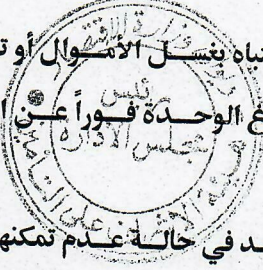 تباه بغسل الأموال أو ت
غ الوحدة فوراً عن ا
ـد في حالة عدم تمكنه
رئيس
مجلس الادارة